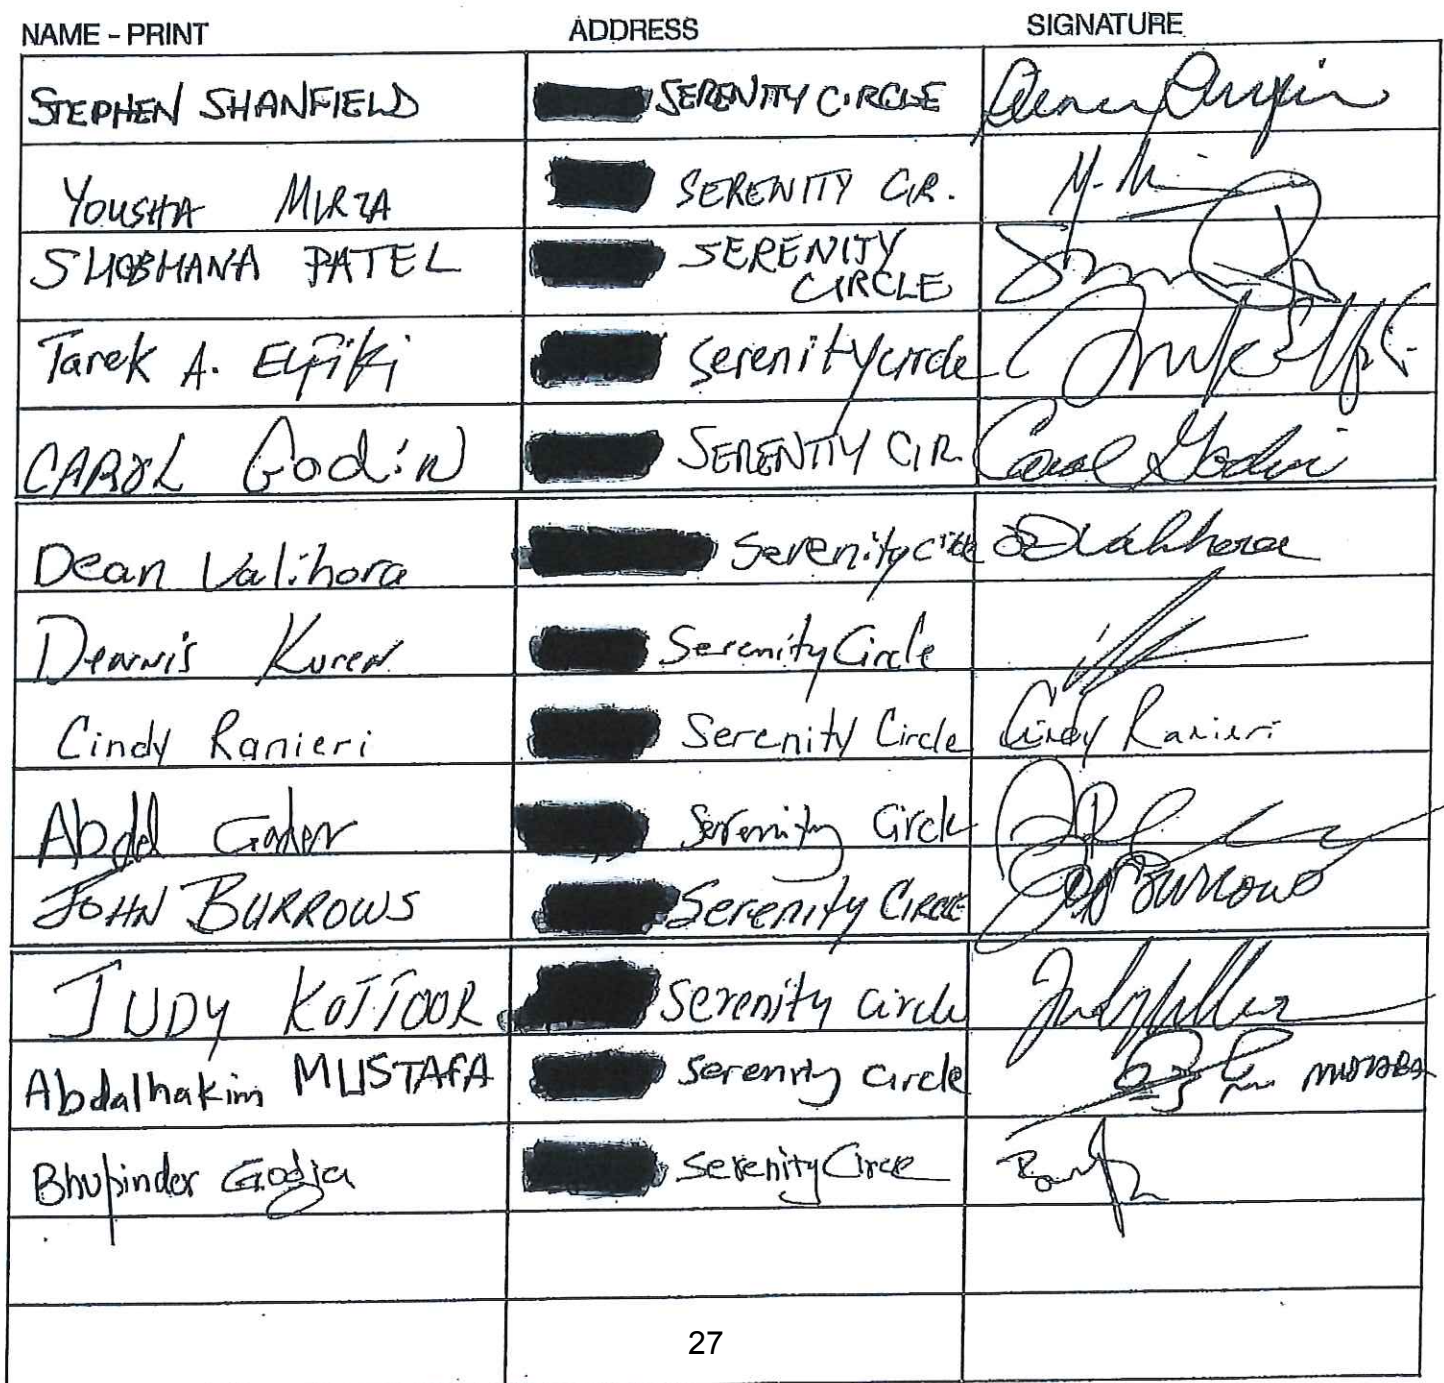 NAME - PRINT ADDRESS SIGNATURE
STEPHEN SHANFIELD SERENITY CIRCLE
YOUSHA MIRZA SERENITY CIR. Y. Mi
SHOBHANA PATEL SERENITY
CIRCLE
Tarek A. Elfiki Serenity circle
CAROL Godin SERENITY CIR. Carol Godin
Dean Valihora Serenity circle D Valihora
Dennis Kuren Serenity Circle
Cindy Ranieri Serenity Circle Cindy Ranieri
Abdel Gaber Serenity Circle
JOHN BURROWS Serenity CIRCLE Burrows
JUDY KOTTOOR Serenity circle
Abdalhakim MUSTAFA Serenity circle
Bhupinder Godja Serenity Circle
27